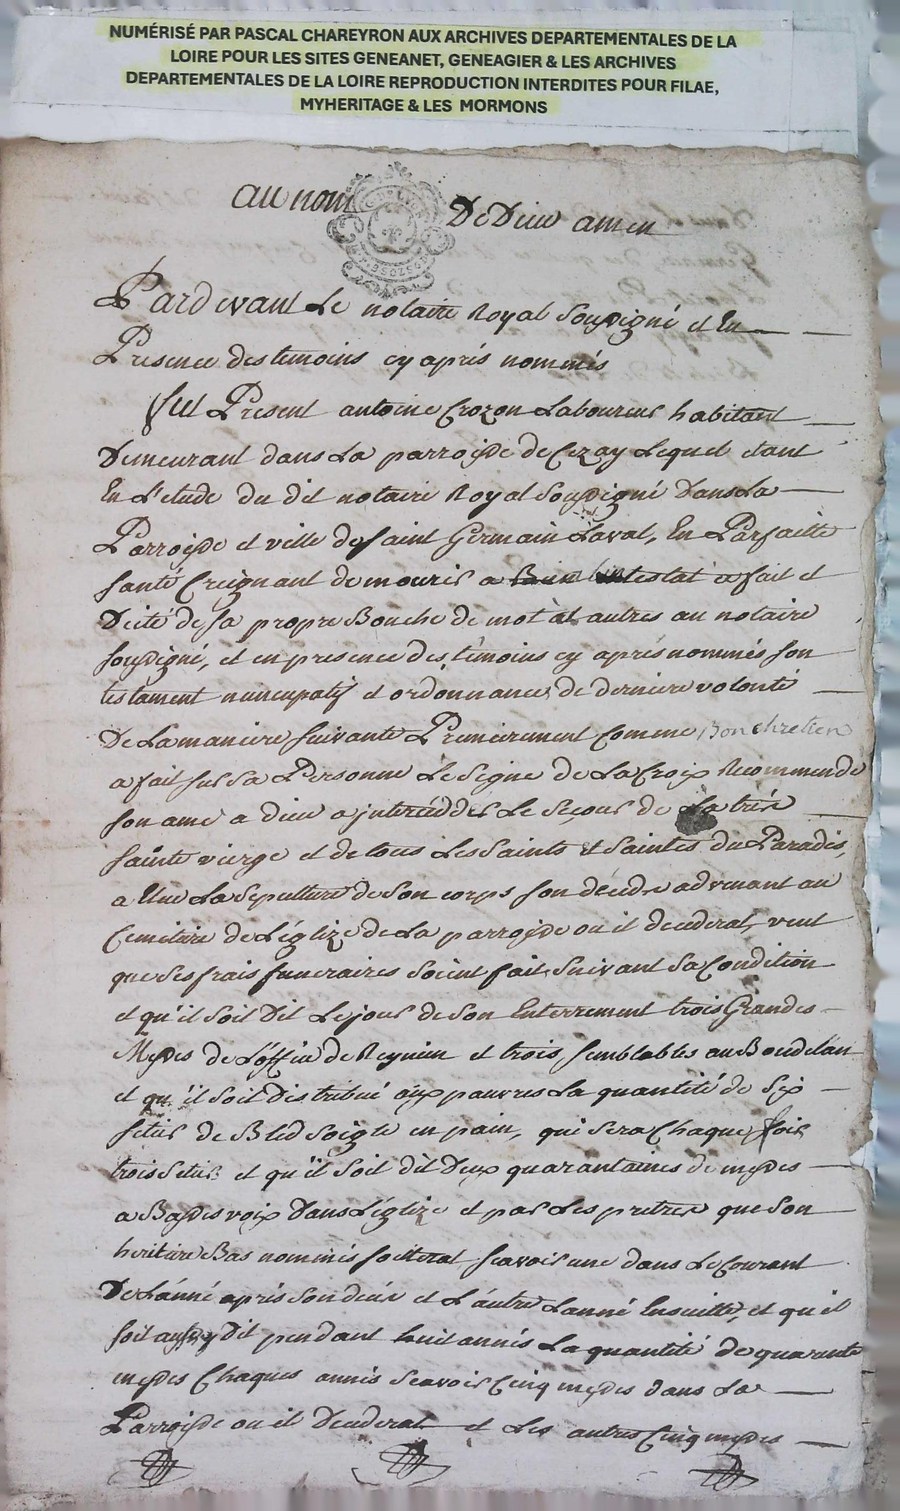 NUMÉRISÉ PAR PASCAL CHAREYRON AUX ARCHIVES DEPARTEMENTALES DE LA
LOIRE POUR LES SITES GENEANET, GENEAGIER & LES ARCHIVES
DEPARTEMENTALES DE LA LOIRE REPRODUCTION INTERDITES POUR FILAE,
MYHERITAGE & LES MORMONS
au nom De Dieu amen
Pardevant Le notaire Royal Soussigné et En
Presence des temoins cy aprés nommés
fut Present antoine Crozon Laboureur habitant
Demeurant dans La parroisse de Cezay Lequel etant
En L'etude du dit notaire Royal Soussigné Dans La
Parroisse et ville de Saint Germain Laval, En Parfaitte
santé Creignant de mourir a intestat a fait et
Dicté de sa propre Bouche de mot a autres au notaire
soussigné, et en presence des témoins cy aprés nommés son
testament nuncupatif et ordonnance de derniere volonté
De La maniere suivante Premierement Comme Bon chretien
a fait sur sa Personne Le Signe de La Croix Recommende
son ame a dieu a interceddér Le Seçours de La trés
sainte vierge et de tous Les Saints et Saintes du Paradis,
a Elue La Sepulture de Son corps son décéde advenant au
Cemitaire de L'églize de La parroisse ou il decederat, veut
que Ses frais funeraires Soient fait Suivant Sa Condition
et qu'il Soit Dit Le jour de Son Enterrement trois Grandes
Messes de L'office de Requiem et trois semblables au Boudelan
et qu'il Soit Distribué aux pauvres La quantité de Six
setier de Bled Soigle en pain, qui Sera Chaque fois
trois setier et qu'il Soit dit Deux quarantaines de messes
a Basses voix Dans L'églize et par Les pretres que Son
heritiere Bas nommés seavoir une dans Le Courant
De L'année aprés Son decés et L'autre L'anné Ensuitte, et qu'il
soit aussy Dit pendant huit annés La quantité de quarante
messes Chaques annés Scavoir Cinq messes dans La
Parroisse ou il Decederat et Les autres Cinq messes